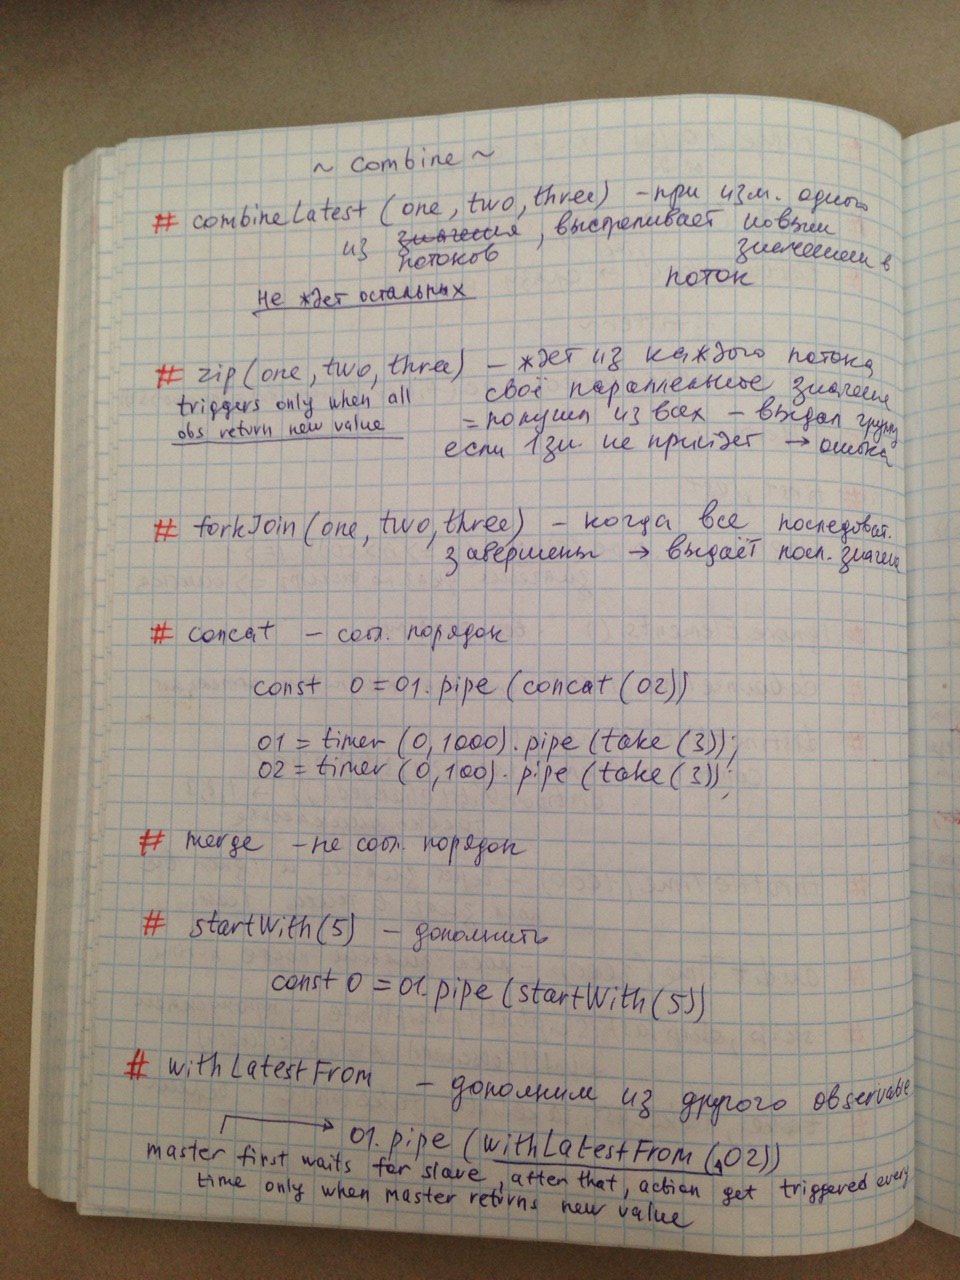 ~ combine ~
# combineLatest (one, two, three) – при изм. одного
из значения, выстреливает новым
потоков значением в
поток
не ждет остальных
# zip (one, two, three) – ждет из каждого потока
triggers only when all своё параллельное значение
obs return new value = получил из всех – выдал группу
если 1 зн. не прийдет → ошибка
# forkJoin (one, two, three) – когда все последоват.
завершены → выдаёт посл. значен
# concat – собл. порядок
const O = O1.pipe (concat (O2))
O1 = timer (0, 1000).pipe (take (3));
O2 = timer (0, 100).pipe (take (3));
# merge – не собл. порядок
# startWith(5) – дополнить
const O = O1.pipe (startWith (5))
# withLatestFrom – дополним из другого observable
→ O1.pipe (withLatestFrom (O2))
master first waits for slave, after that, action get triggered every
time only when master returns new value